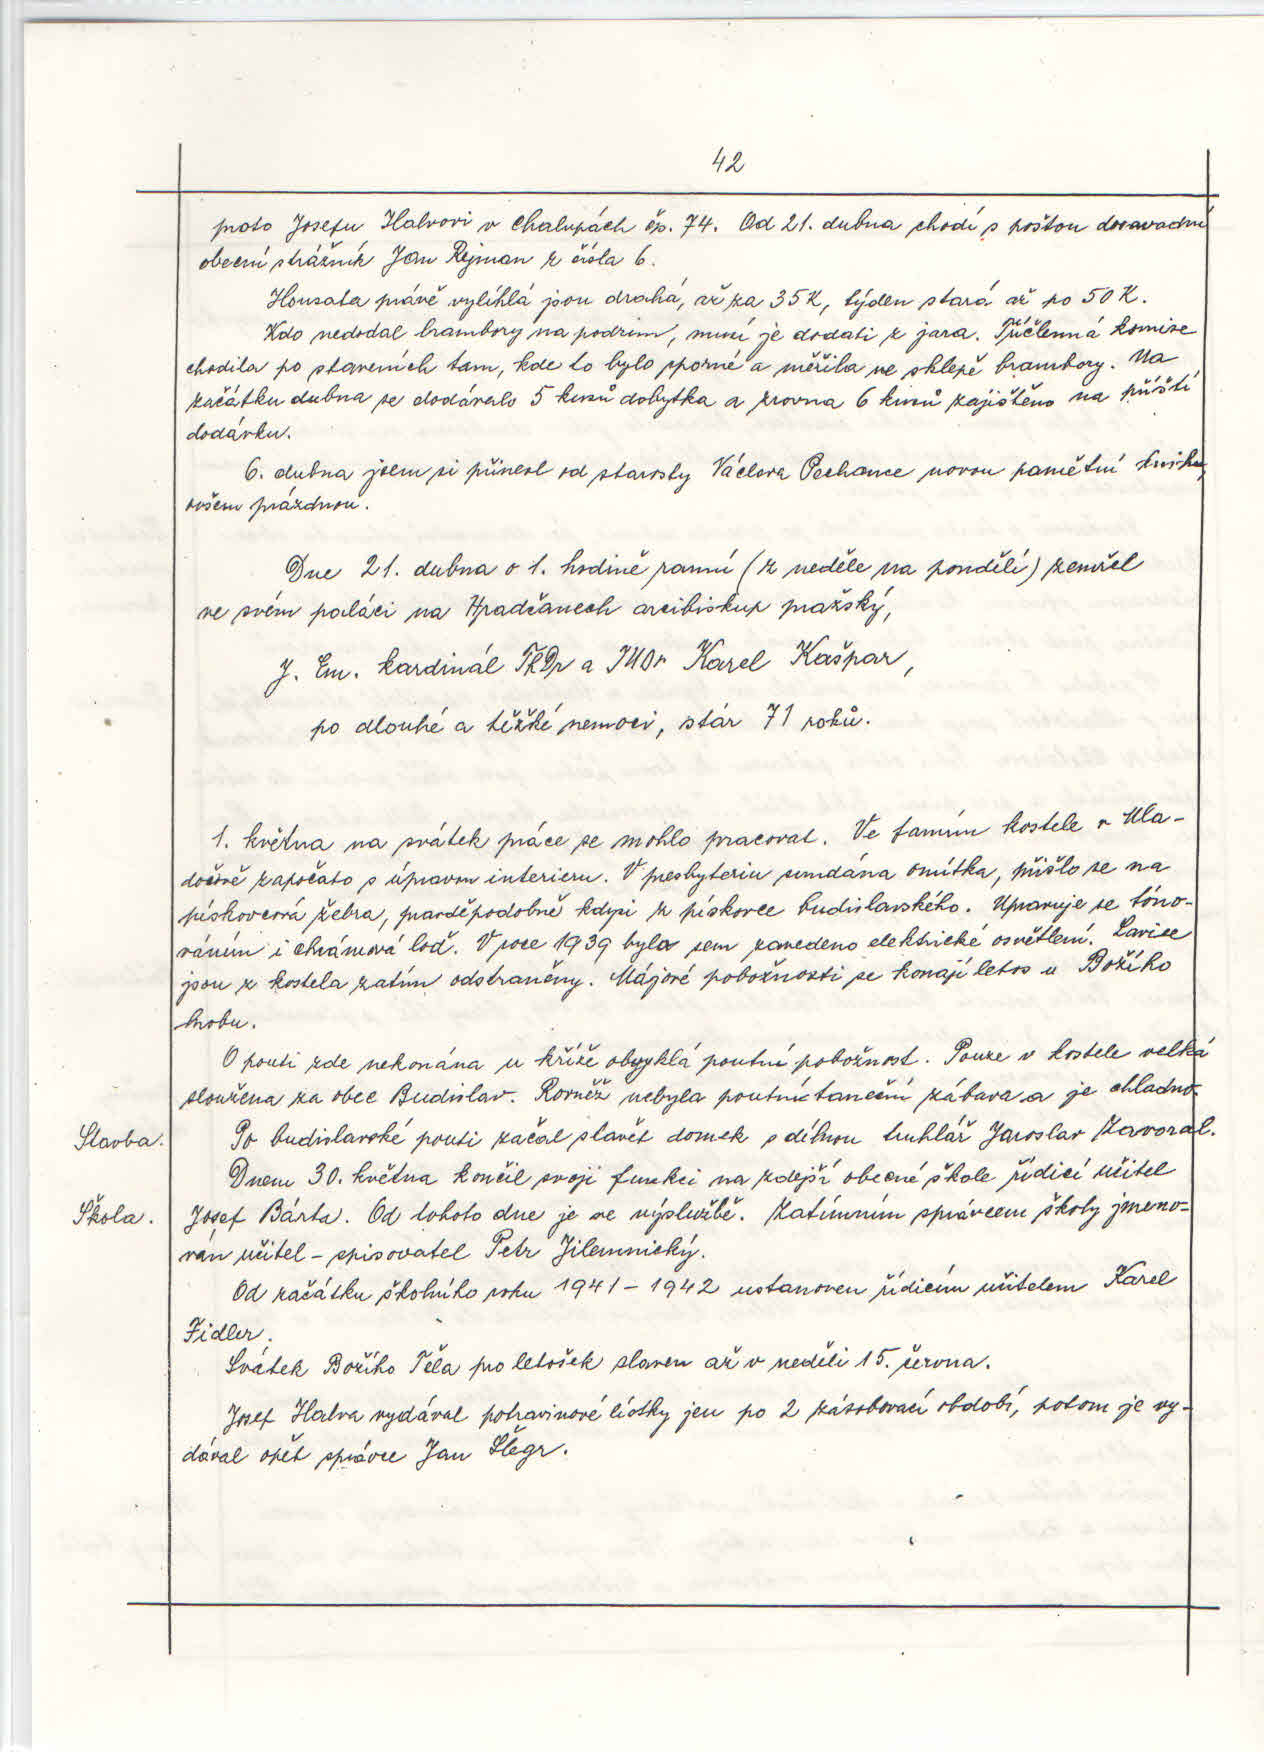 42
proto Josefu Halvovi v Chalupách čp. 74. Od 21. dubna chodí s poštou dosavadní
obecní strážník Jan Rejman z čísla 6.
Housata právě vylíhlá jsou drahá, až za 35 K, týden stará až po 50 K.
Kdo nedodal brambory na podzim, musí je dodati z jara. Tříčlenná komise
chodila po staveních tam, kde to bylo sporné a měřila ve sklepě brambory. Na
začátku dubna se dodávalo 5 kusů dobytka a zrovna 6 kusů zajištěno na příští
dodávku.
6. dubna jsem si přinesl od starosty Václava Pechance novou pamětní knihu,
ovšem prázdnou.
Dne 21. dubna o 1. hodině ranní (z neděle na pondělí) zemřel
ve svém paláci na Hradčanech arcibiskup pražský,
J. Em. kardinál ThDr a JUDr Karel Kašpar,
po dlouhé a těžké nemoci, stár 71 roků.
1. května na svátek práce se mohlo pracovat. Ve farním kostele v Mla-
dočově započato s úpravou interieru. V presbyteriu sundána omítka, přišlo se na
pískovcová žebra, pravděpodobně kdysi z pískovce budislavského. Upravuje se tóno-
váním i chrámová loď. V roce 1939 bylo sem zavedeno elektrické osvětlení. Lavice
jsou z kostela zatím odstraněny. Májové pobožnosti se konají letos u Božího
hrobu.
O pouti zde nekonána u kříže obvyklá poutní pobožnost. Pouze v kostele velká
sloužena za obec Budislav. Rovněž nebyla poutní taneční zábava a je chladno.
Stavba.
Po budislavské pouti začal stavět domek s dílnou truhlář Jaroslav Zavoral.
Dnem 30. května končil svoji funkci na zdejší obecné škole řídicí učitel
Škola.
Josef Bárta. Od tohoto dne je ve výslužbě. Zatímním správcem školy jmeno-
ván učitel - spisovatel Petr Jilemnický.
Od začátku školního roku 1941 - 1942 ustanoven řídicím učitelem Karel
Fidler.
Svátek Božího Těla pro letošek slaven až v neděli 15. června.
Josef Halva vydával potravinové lístky jen po 2 zásobovací období, potom je vy-
dával opět správce Jan Šlégr.